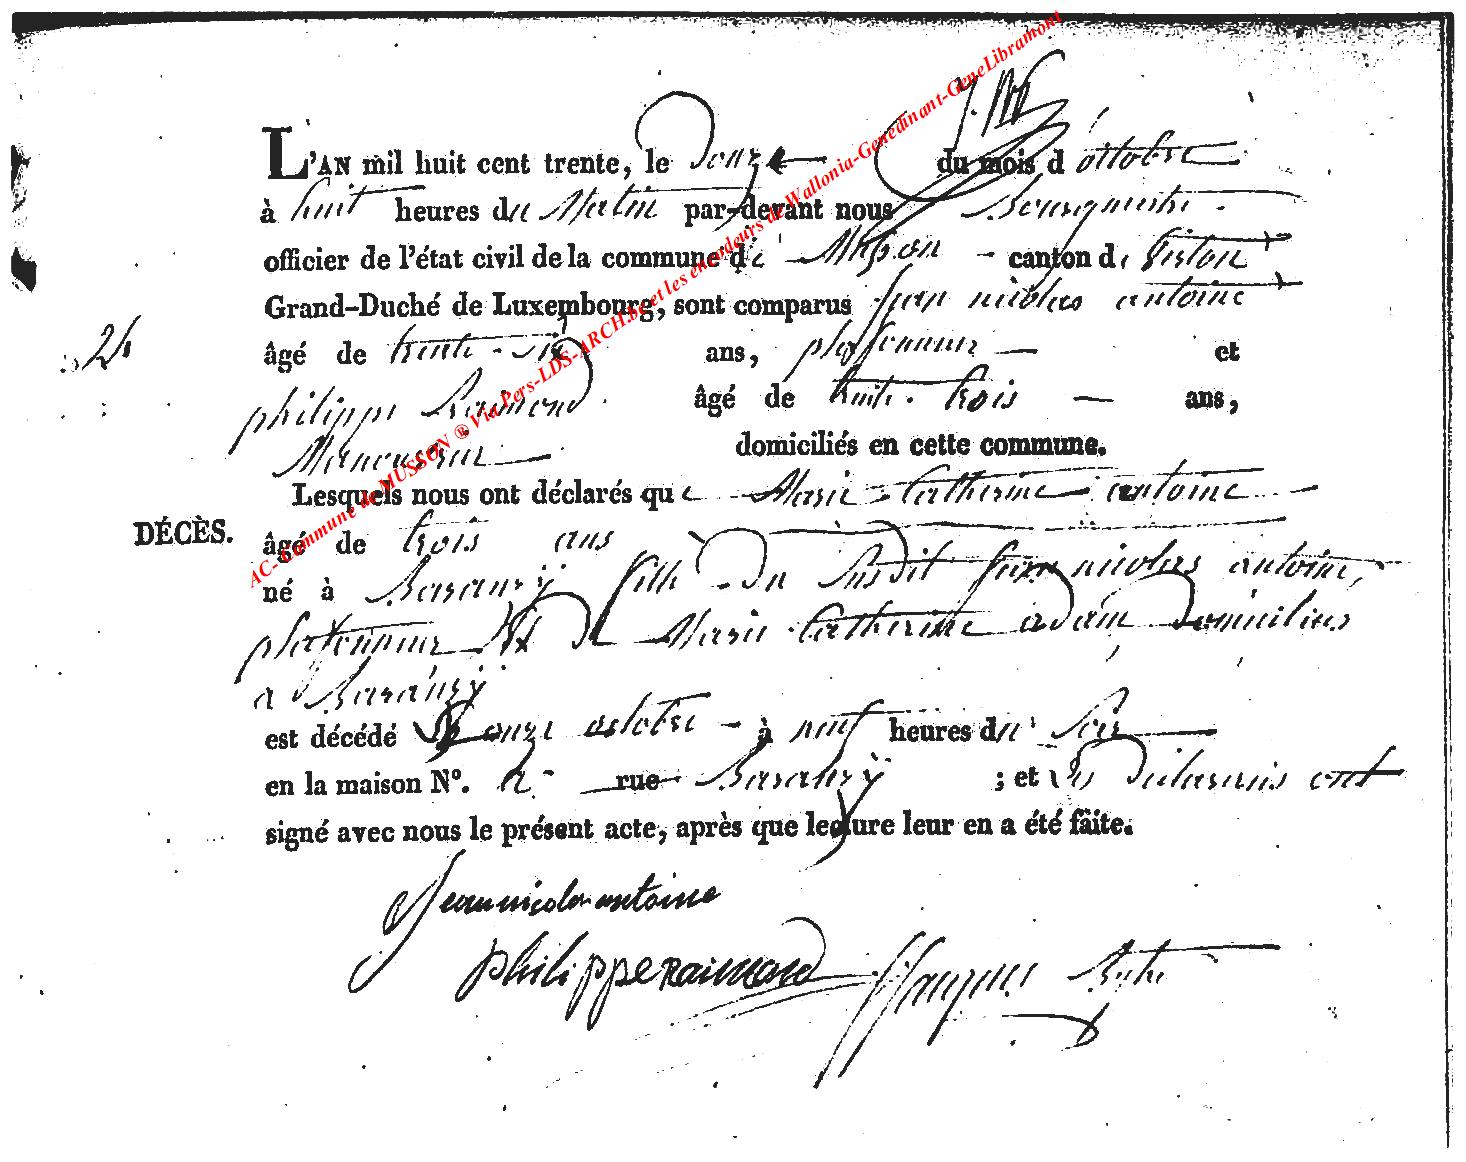 L'AN mil huit cent trente, le Douze du mois d'octobre
à huit heures du Matin par-devant nous Bourgmestre
officier de l'état civil de la commune de Musson canton de Virton
Grand-Duché de Luxembourg, sont comparus Jean nicolas antoine
24
âgé de trente-six ans, plafonneur et
philippe Raimond âgé de trente-trois ans,
Manouvrier domiciliés en cette commune.
Lesquels nous ont déclarés que Marie Catherine antoine
DÉCÈS.
âgé de trois ans
né à Baranzÿ fille du Susdit Jean nicolas antoine,
plafonneur et de Marie Catherine adam Domiciliés
a Baranzÿ
est décédé le onze octobre à neuf heures du Soir
en la maison N°. rue Baranzÿ ; et les Déclarans ont
signé avec nous le présent acte, après que lecture leur en a été faite.
Jean nicolas antoine
philippe Raimond Jacques
AC- Commune de MUSSON ® Via Pers-LDS-ARCH.be et les encodeurs de Wallonia-Genedinant-GeneLibramont